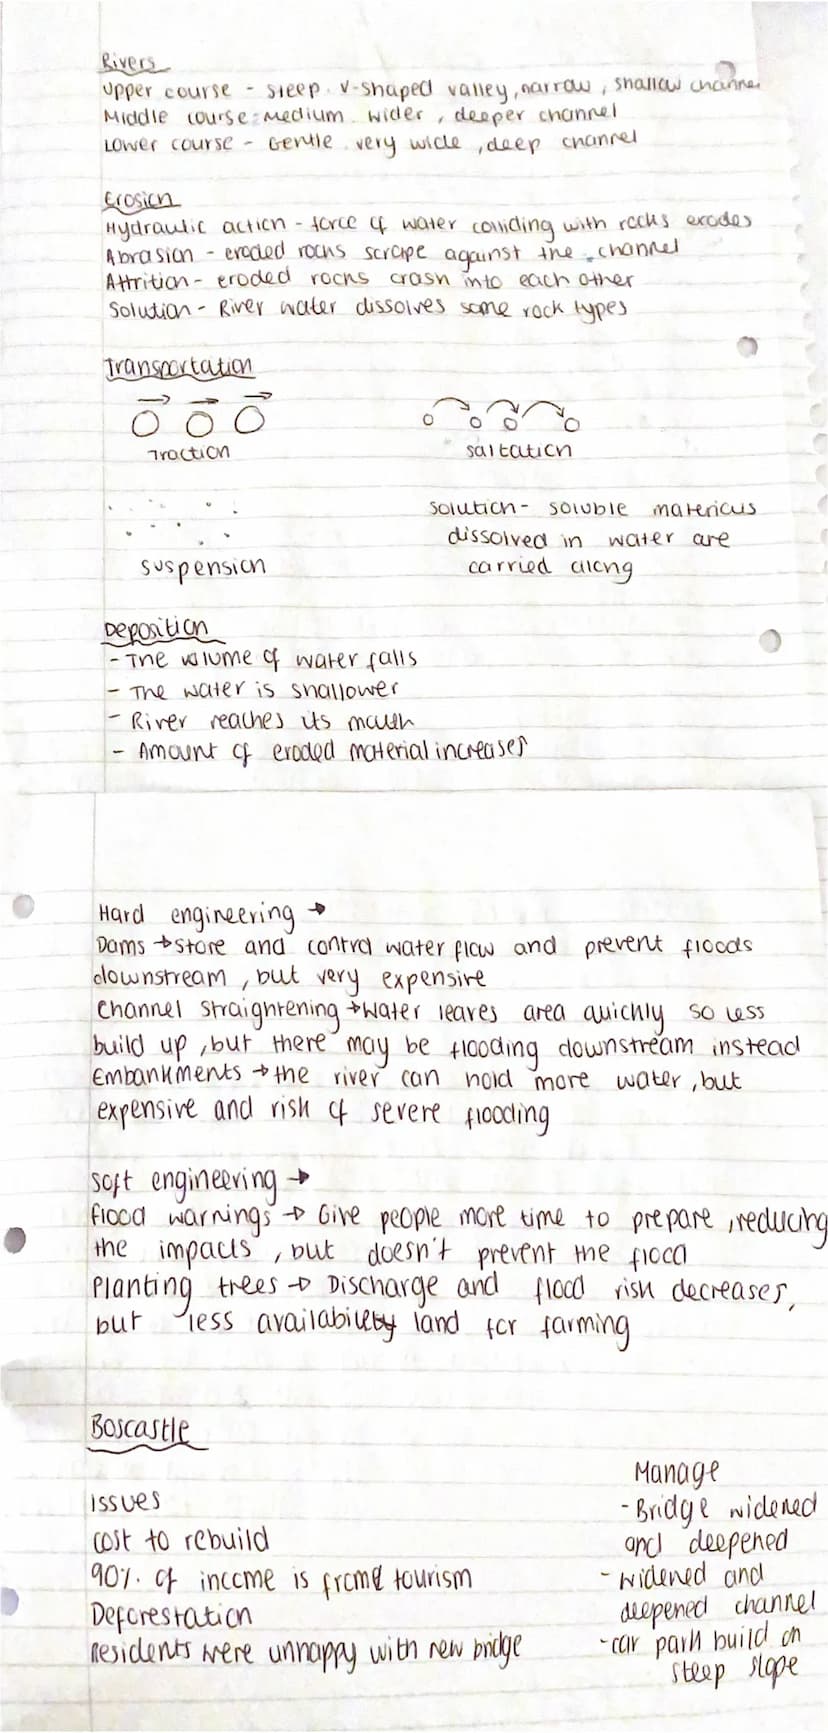 Rivers
Upper course - steep. V-shaped valley, narrow, shallow channel
Middle course: Medium. wider, deeper channel
Lower course - Gentle. very wide, deep channel
Erosion
Hydraulic action - force of water colliding with rocks erodes
Abrasion - eroded rocks scrape against the channel
Attrition - eroded rocks crash into each other
Solution - River water dissolves some rock types
Transportation
Traction
saltation
suspension
solution - soluble materials
dissolved in water are
carried along
Deposition
- The volume of water falls
- The water is shallower
- River reaches its mouth
- Amount of eroded material increases
Hard engineering →
Dams → store and control water flow and prevent floods
downstream, but very expensive
Channel straightening → Water leaves area quickly so less
build up, but there may be flooding downstream instead
Embankments → the river can hold more water, but
expensive and risk of severe flooding
Soft engineering →
flood warnings → Give people more time to prepare, reducing
the impacts, but doesn't prevent the flood
Planting trees → Discharge and flood risk decreases,
but less availability land for farming
Boscastle
Issues
Cost to rebuild
90% of income is from tourism
Deforestation
Residents were unhappy with new bridge
Manage
- Bridge widened
and deepened
- widened and
deepened channel
- car park build on
steep slope